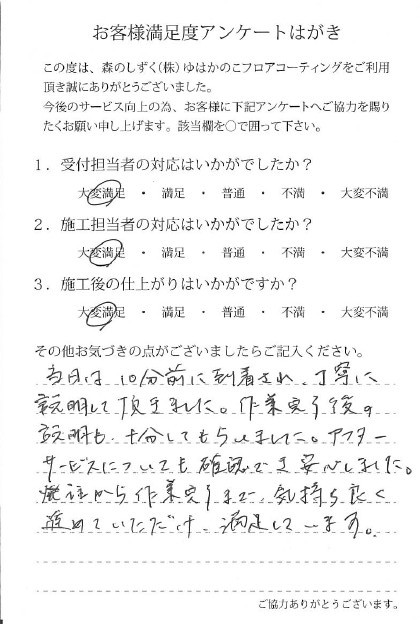 お客様満足度アンケートはがき
この度は、森のしずく(株)ゆはかのこフロアコーティングをご利用
頂き誠にありがとうございました。
今後のサービス向上の為、お客様に下記アンケートへご協力を賜り
たくお願い申し上げます。該当欄を〇で囲って下さい。
1．受付担当者の対応はいかがでしたか？
大変満足 ・ 満足 ・ 普通 ・ 不満 ・ 大変不満
2．施工担当者の対応はいかがでしたか？
大変満足 ・ 満足 ・ 普通 ・ 不満 ・ 大変不満
3．施工後の仕上がりはいかがですか？
大変満足 ・ 満足 ・ 普通 ・ 不満 ・ 大変不満
その他お気づきの点がございましたらご記入ください。
当日は10分前に到着され、丁寧に
説明して頂きました。作業完了後の
説明も、十分してもらいました。アフター
サービスについても確認でき安心しました。
発注から作業完了まで、気持ち良く
進めていただけ、満足しています。
ご協力ありがとうございます。